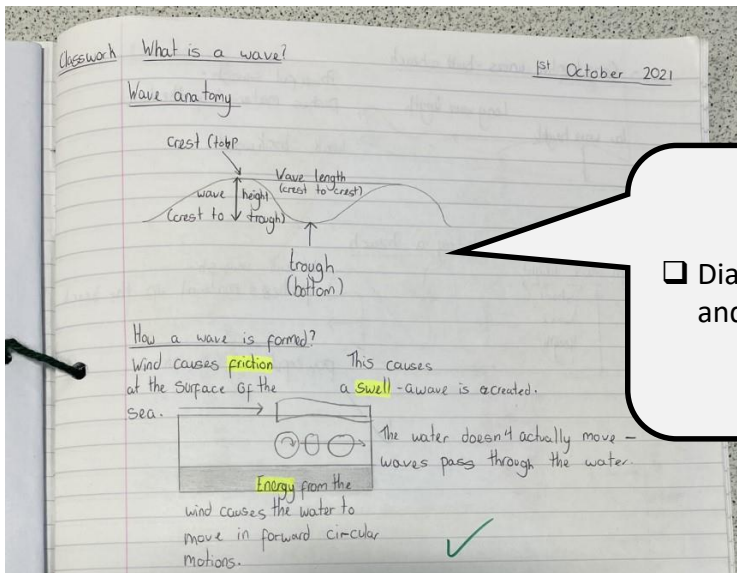 Classwork What is a wave?
1st October 2021
Wave anatomy
Crest (top
Wave length
(crest to crest)
wave height
(crest to trough)
trough
(bottom)
How a wave is formed?
Wind causes friction
at the surface of the
sea.
This causes
a swell - a wave is created.
The water doesn't actually move -
waves pass through the water.
Energy from the
wind causes the water to
move in forward circular
motions.
Dia
and